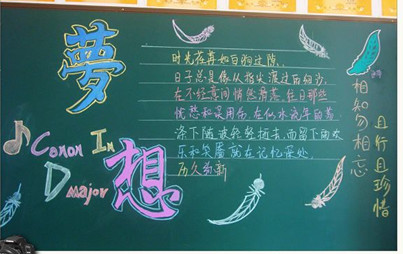 夢
想
♪Canon In
D major
时光荏苒如白驹过隙,
日子总是像从指尖渡过的细沙,
在不经意间悄然滑落。往日那些
忧愁和误用伤,在似水流年的荡
涤下随波轻轻逝去,而留下的欢
乐和笑靥就在记忆深处,
历久弥新
相知勿相忘
且行且珍惜